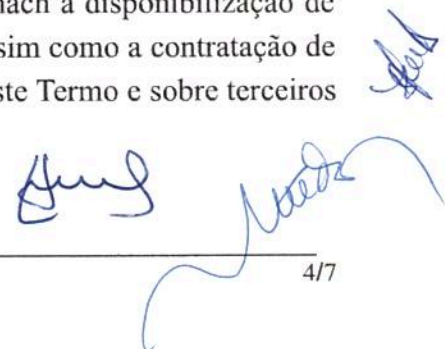 nach a disponibilização de
sim como a contratação de
ste Termo e sobre terceiros
4/7